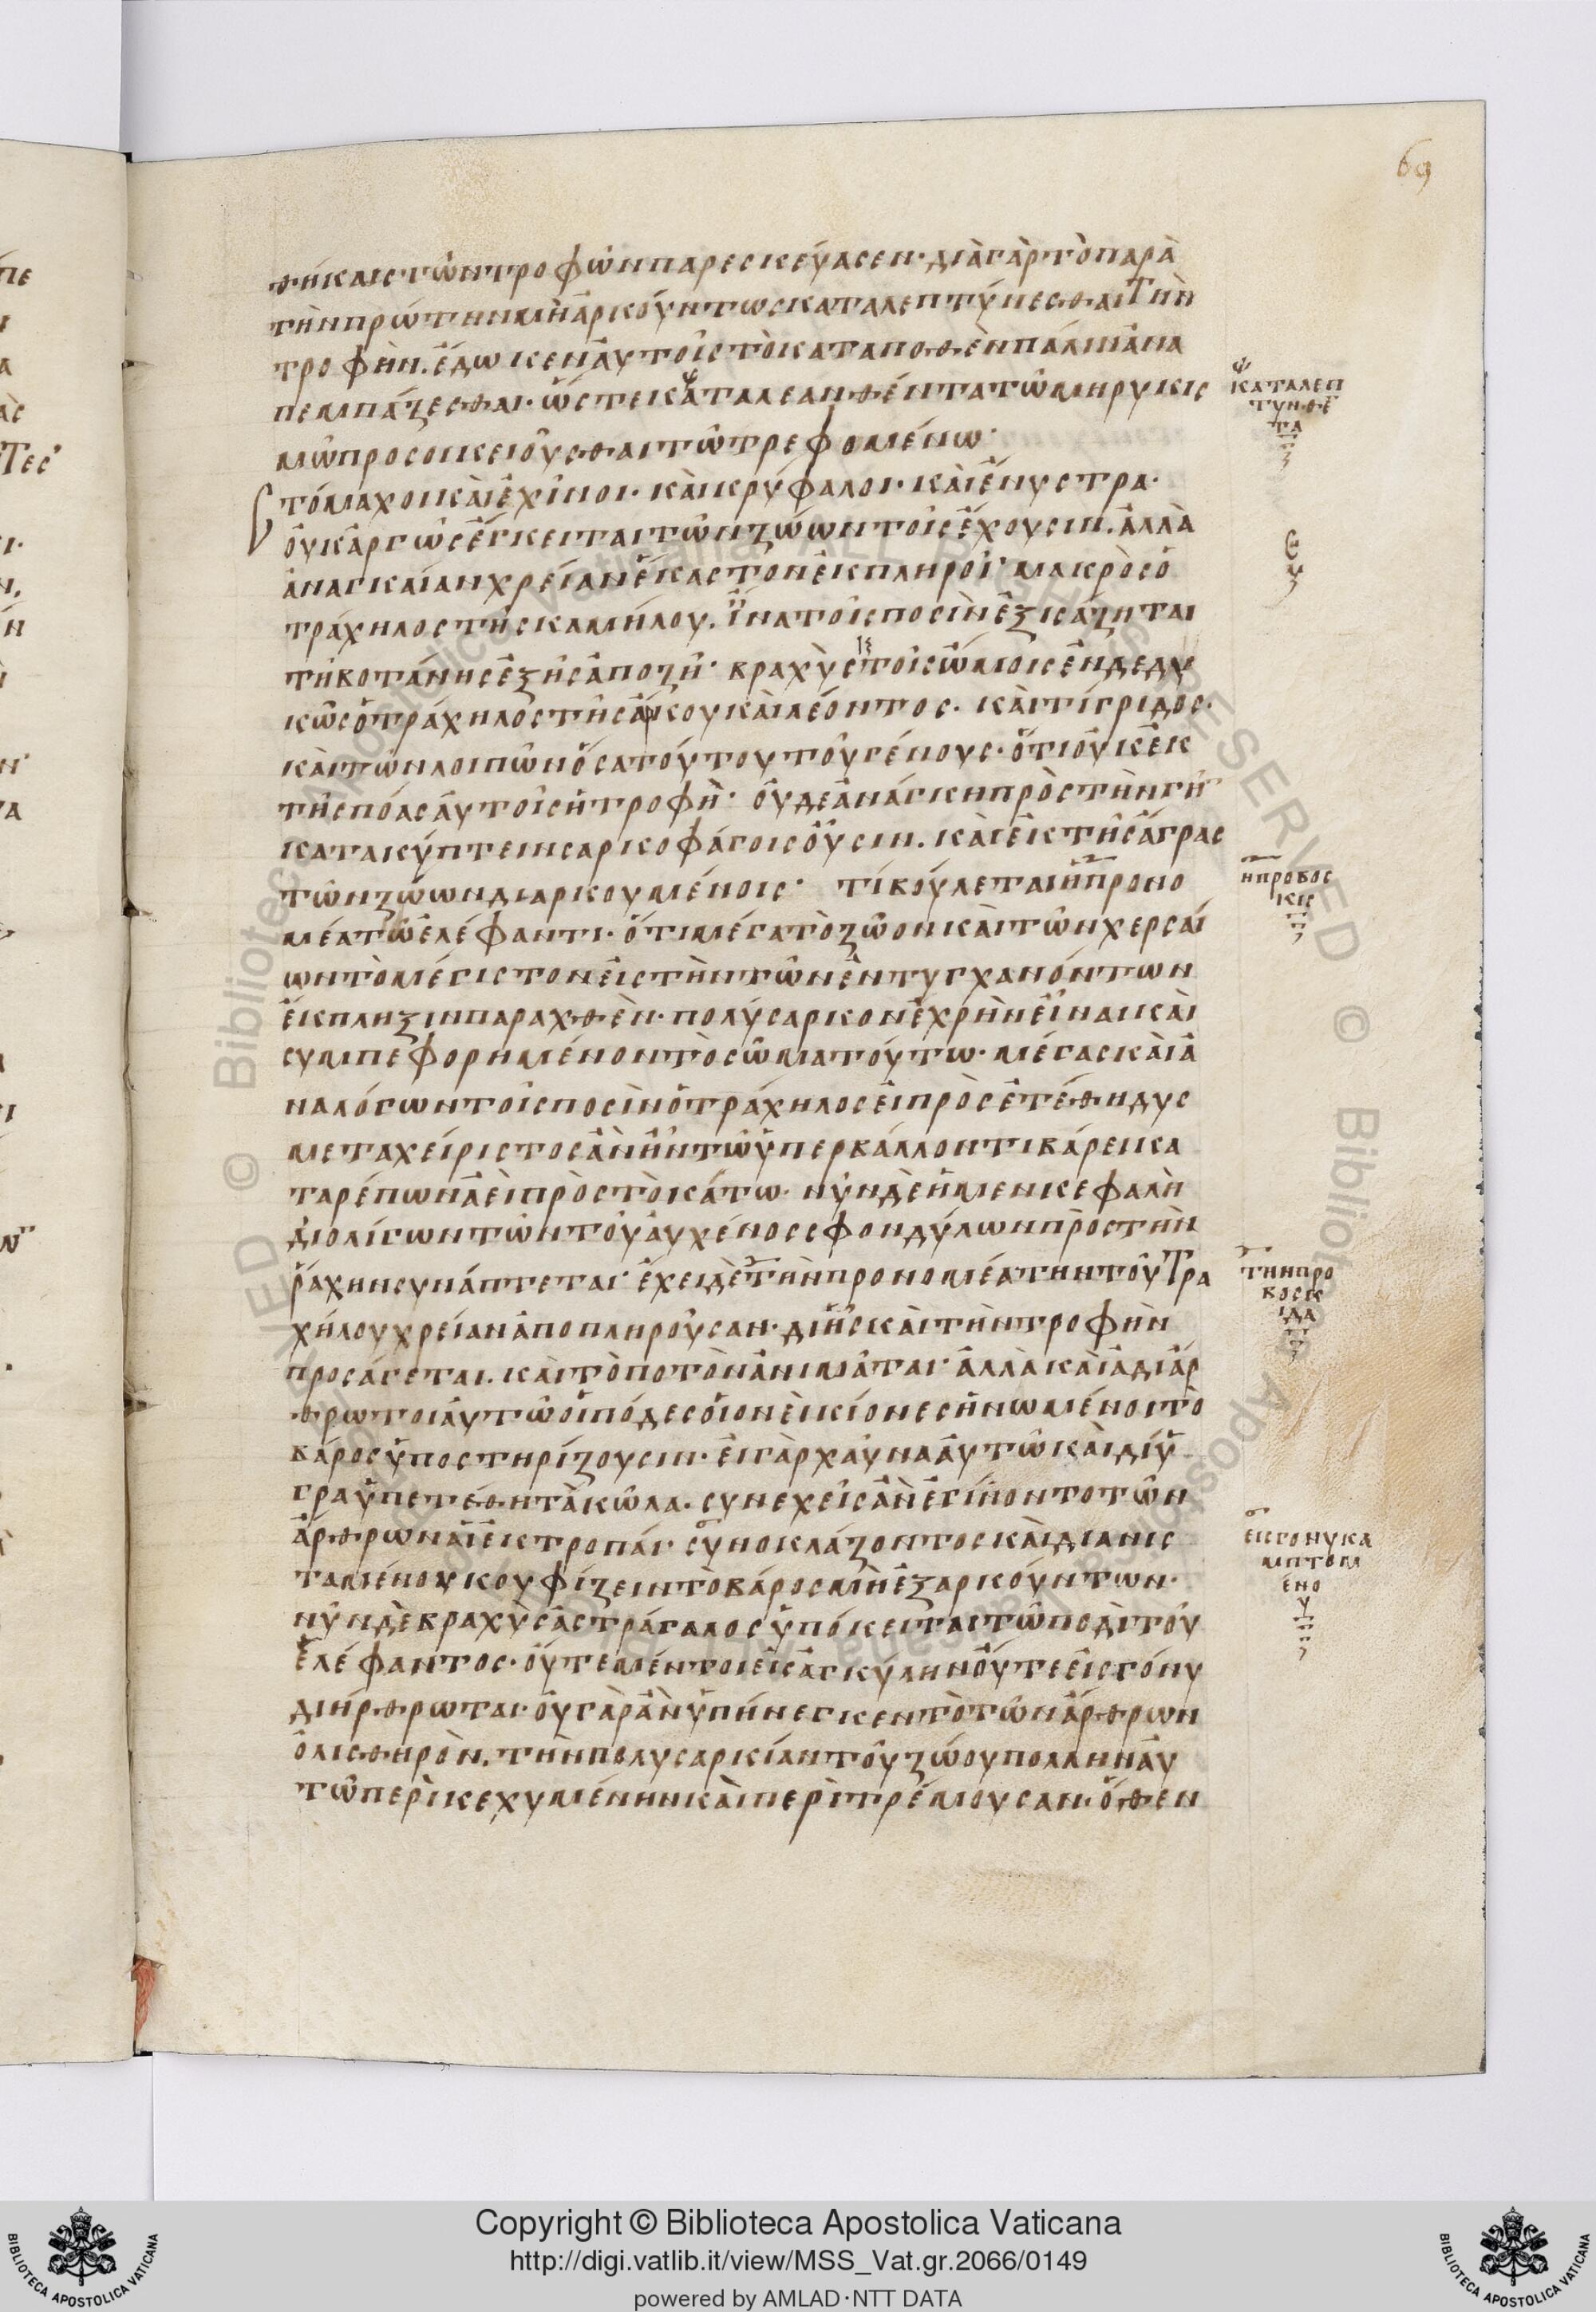 69
θήκαις τῶν τροφῶν παρεσκεύασεν· διὰ γὰρ τὸ παρὰ
τὴν πρώτην μὴ ἀρκούντως καταλεπτύνεσθαι τὴν
τροφήν. ἔδωκεν αὐτοῖς τὸ καταποθὲν πάλιν ἀνα
πεμπάζεσθαι· ὥστε καταλεανθέντα τῶ μηρυκισ
μῶ προσοικειοῦσθαι τῶ τρεφομένω·
Στόμαχοι καὶ ἐχῖνοι· καὶ κρύφαλοι· καὶ ἔνυστρα·
οὐκ ἀργῶς ἔγκειται τῶν ζώων τοῖς ἔχουσιν. ἀλλὰ
ἀναγκαίαν χρείαν ἕκαστον ἐκπληροῖ· μακρὸς ὁ
τράχηλος τῆς καμήλου. ἵνα τοῖς ποσὶν ἐξισάζηται
τῆ βοτάνης ἐξ ἧς ἀποζῆ· βραχὺς τοῖς ὤμοις ἐνδεδυ
κὼς ὁ τράχηλος τῆς ἄρκου καὶ λέοντος· καὶ τίγριδος·
καὶ τῶν λοιπῶν ὅσα τούτου τοῦ γένους· ὅτι οὐκ ἐκ
τῆς πόας αὐτοῖς ἡ τροφή· οὐδε ἀνάγκη πρὸς τὴν γῆν
κατακύπτειν σαρκοφάγοις οὖσιν. καὶ ἐκ τῆς ἄγρας
τῶν ζώων διαρκουμένοις· τί βούλεται ἡ προνο
μέα τῶ ἐλέφαντι· ὅτι μέγα τὸ ζῶον καὶ τῶν χερσαί
ων τὸ μέγιστον εἰς τὴν τῶν ἐντυγχανόντων
ἔκπληξιν παραχθὲν· πολύσαρκον ἐχρῆν εἶναι καὶ
συμπεφορημένον τὸ σῶμα τούτω· μέγας καὶ ἀ
ναλόγων τοῖς ποσὶν ὁ τράχηλος εἰ προσετέθη δυσ
μεταχείριστος ἂν ἦν τῶ ὑπερβάλλοντι βάρει κα
ταρέπων ἀεὶ πρὸς τὸ κάτω· νῦν δὲ ἡ μεν κεφαλὴ
δι ολίγων τῶν τοῦ αὐχένος σφονδύλων πρὸς τὴν
ῥάχην συνάπτεται· ἔχει δὲ τὴν προνομέα τὴν τοῦ τρα
χήλου χρείαν ἀποπληροῦσαν· δι ἧς καὶ τὴν τροφὴν
προσάγεται. καὶ τὸ ποτὸν ἀνιμᾶται· ἀλλὰ καὶ ἀδιάρ
θρωτοι αὐτῶ οἱ πόδες οἱονεὶ κίονες ἡνωμένοι τὸ
βάρος ὑποστηρίζουσιν· εἰ γὰρ χαῦνα αὐτῶ καὶ δίυ
γρα ὑπετέθη τὰ κῶλα· συνεχεῖς ἂν ἐγίνοντο τῶν
ἄρθρων αἱ ἐκτροπαί· συνοκλάζοντος καὶ διανισ
ταμένου κουφίζειν τὸ βάρος μὴ ἐξαρκούντων·
νῦν δὲ βραχὺς ἀστράγαλος ὑπόκειται τῶ ποδὶ τοῦ
ἐλέφαντος· οὔτε μέντοι εἰς ἀγκύλην οὔτε εἰς γόνυ
διήρθρωται· οὐ γὰρ ἂν ὑπήνεγκεν τὸ τῶν ἄρθρων
ὀλισθηρὸν. τὴν πολυσαρκίαν τοῦ ζώου πολλὴν αὐ
τῶ περικεχυμένην καὶ περιτρέμουσαν· ὅθεν
καταλεπ
τυνθέ
τα
ἡ προβοσ
κις
τὴν προ
βοσκ
ιδα
εις γονυ κα
μπτομ
ένο
υ
Copyright © Biblioteca Apostolica Vaticana
http://digi.vatlib.it/view/MSS_Vat.gr.2066/0149
powered by AMLAD·NTT DATA